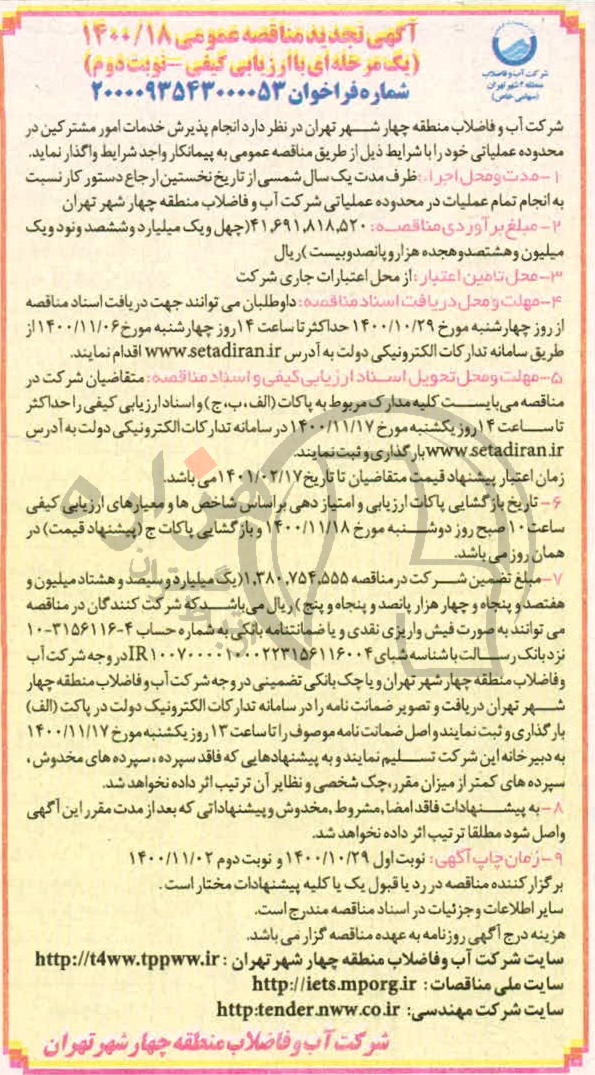 آگهی تجدید مناقصه عمومی ۱۴۰۰/۱۸
(یک مرحله ای با ارزیابی کیفی – نوبت دوم)
شماره فراخوان ۲۰۰۰۰۹۳۵۴۳۰۰۰۰۵۳
شرکت آب و فاضلاب
منطقه ۴ شهر تهران
(سهامی خاص)
شرکت آب و فاضلاب منطقه چهار شهر تهران در نظر دارد انجام پذیرش خدمات امور مشترکین در
محدوده عملیاتی خود را با شرایط ذیل از طریق مناقصه عمومی به پیمانکار واجد شرایط واگذار نماید.
۱- مدت و محل اجراء: ظرف مدت یک سال شمسی از تاریخ نخستین ارجاع دستور کار نسبت
به انجام تمام عملیات در محدوده عملیاتی شرکت آب و فاضلاب منطقه چهار شهر تهران
۲- مبلغ برآوردی مناقصه: ۴۱,۶۹۱,۸۱۸,۵۲۰(چهل و یک میلیارد و ششصد و نود و یک
میلیون و هشتصد و هجده هزار و پانصد و بیست) ریال
۳- محل تامین اعتبار: از محل اعتبارات جاری شرکت
۴- مهلت و محل دریافت اسناد مناقصه: داوطلبان می توانند جهت دریافت اسناد مناقصه
از روز چهارشنبه مورخ ۱۴۰۰/۱۰/۲۹ حداکثر تا ساعت ۱۴ روز چهارشنبه مورخ ۱۴۰۰/۱۱/۰۶ از
طریق سامانه تدارکات الکترونیکی دولت به آدرس www.setadiran.ir اقدام نمایند.
۵- مهلت و محل تحویل اسناد ارزیابی کیفی و اسناد مناقصه: متقاضیان شرکت در
مناقصه می بایست کلیه مدارک مربوط به پاکات (الف، ب، ج) و اسناد ارزیابی کیفی را حداکثر
تا ساعت ۱۴ روز یکشنبه مورخ ۱۴۰۰/۱۱/۱۷ در سامانه تدارکات الکترونیکی دولت به آدرس
www.setadiran.ir بارگذاری و ثبت نمایند.
زمان اعتبار پیشنهاد قیمت متقاضیان تا تاریخ ۱۴۰۱/۰۲/۱۷ می باشد.
۶- تاریخ بازگشایی پاکات ارزیابی و امتیازدهی براساس شاخص ها و معیارهای ارزیابی کیفی
ساعت ۱۰ صبح روز دوشنبه مورخ ۱۴۰۰/۱۱/۱۸ و بازگشایی پاکات ج (پیشنهاد قیمت) در
همان روز می باشد.
۷- مبلغ تضمین شرکت در مناقصه ۱,۳۸۰,۷۵۴,۵۵۵(یک میلیارد و سیصد و هشتاد میلیون و
هفتصد و پنجاه و چهار هزار پانصد و پنجاه و پنج) ریال می باشد که شرکت کنندگان در مناقصه
می توانند به صورت فیش واریزی نقدی و یا ضمانتنامه بانکی به شماره حساب ۴-۳۱۵۶۱۱۶-۱۰
نزد بانک رسالت با شناسه شبای IR۱۰۰۷۰۰۰۰۱۰۰۰۲۲۳۱۵۶۱۱۶۰۰۴ در وجه شرکت آب
و فاضلاب منطقه چهار شهر تهران و یا چک بانکی تضمینی در وجه شرکت آب و فاضلاب منطقه چهار
شهر تهران دریافت و تصویر ضمانت نامه را در سامانه تدارکات الکترونیک دولت در پاکت (الف)
بارگذاری و ثبت نمایند و اصل ضمانت نامه موصوف را تا ساعت ۱۳ روز یکشنبه مورخ ۱۴۰۰/۱۱/۱۷
به دبیرخانه این شرکت تسلیم نمایند و به پیشنهادهایی که فاقد سپرده، سپرده های مخدوش،
سپرده های کمتر از میزان مقرر، چک شخصی و نظایر آن ترتیب اثر داده نخواهد شد.
۸- به پیشنهادات فاقد امضا، مشروط، مخدوش و پیشنهاداتی که بعد از مدت مقرر این آگهی
واصل شود مطلقا ترتیب اثر داده نخواهد شد.
۹- زمان چاپ آگهی: نوبت اول ۱۴۰۰/۱۰/۲۹ و نوبت دوم ۱۴۰۰/۱۱/۰۲
برگزار کننده مناقصه در رد یا قبول یک یا کلیه پیشنهادات مختار است.
سایر اطلاعات و جزئیات در اسناد مناقصه مندرج است.
هزینه درج آگهی روزنامه به عهده مناقصه گزار می باشد.
سایت شرکت آب و فاضلاب منطقه چهار شهر تهران : http://t4ww.tppww.ir
سایت ملی مناقصات: http://iets.mporg.ir
سایت شرکت مهندسی: http:tender.nww.co.ir
شرکت آب و فاضلاب منطقه چهار شهر تهران